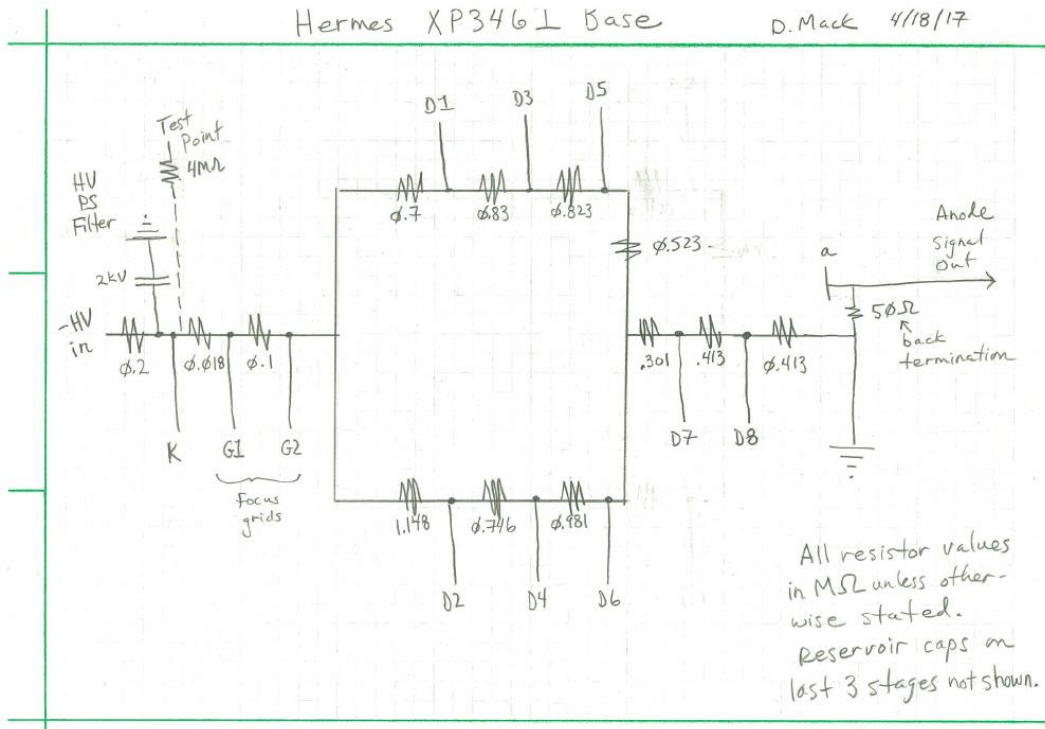 Hermes XP3461 Base
D. Mack 4/18/17
Test
Point
4MΩ
HV
PS
Filter
2kV
-HV
in
Ø.2
Ø.Ø18
Ø.1
K
G1
G2
Focus
grids
D1
D3
D5
Ø.7
Ø.83
Ø.823
Ø.523
1.148
Ø.746
Ø.981
D2
D4
D6
.301
.413
Ø.413
D7
D8
a
Anode
Signal
Out
5ØΩ
back
termination
All resistor values
in MΩ unless other-
wise stated.
Reservoir caps on
last 3 stages not shown.